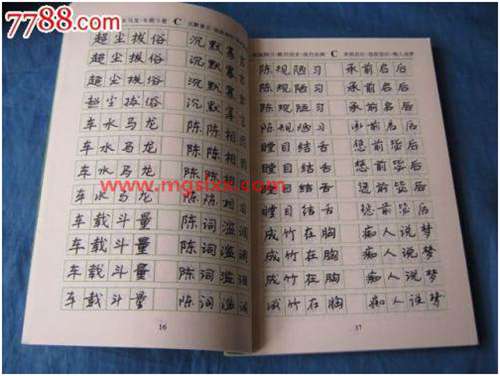 7788.com
C
超尘拔俗 沉默寡言
超尘拔俗 沉默寡言
超尘拔俗 沉默寡言
超尘拔俗 沉默寡言
车水马龙 陈陈相因
车水马龙 陈陈相因
车水马龙 陈陈相因
车水马龙 陈陈相因
车载斗量 陈词滥调
车载斗量 陈词滥调
车载斗量 陈词滥调
车载斗量 陈词滥调
16
陈规陋习·瞠目结舌·成竹在胸 C 承前启后·惩前毖后·痴人说梦
陈规陋习 承前启后
陈规陋习 承前启后
陈规陋习 承前启后
陈规陋习 承前启后
瞠目结舌 惩前毖后
瞠目结舌 惩前毖后
瞠目结舌 惩前毖后
瞠目结舌 惩前毖后
成竹在胸 痴人说梦
成竹在胸 痴人说梦
成竹在胸 痴人说梦
成竹在胸 痴人说梦
17
www.mgslxx.com